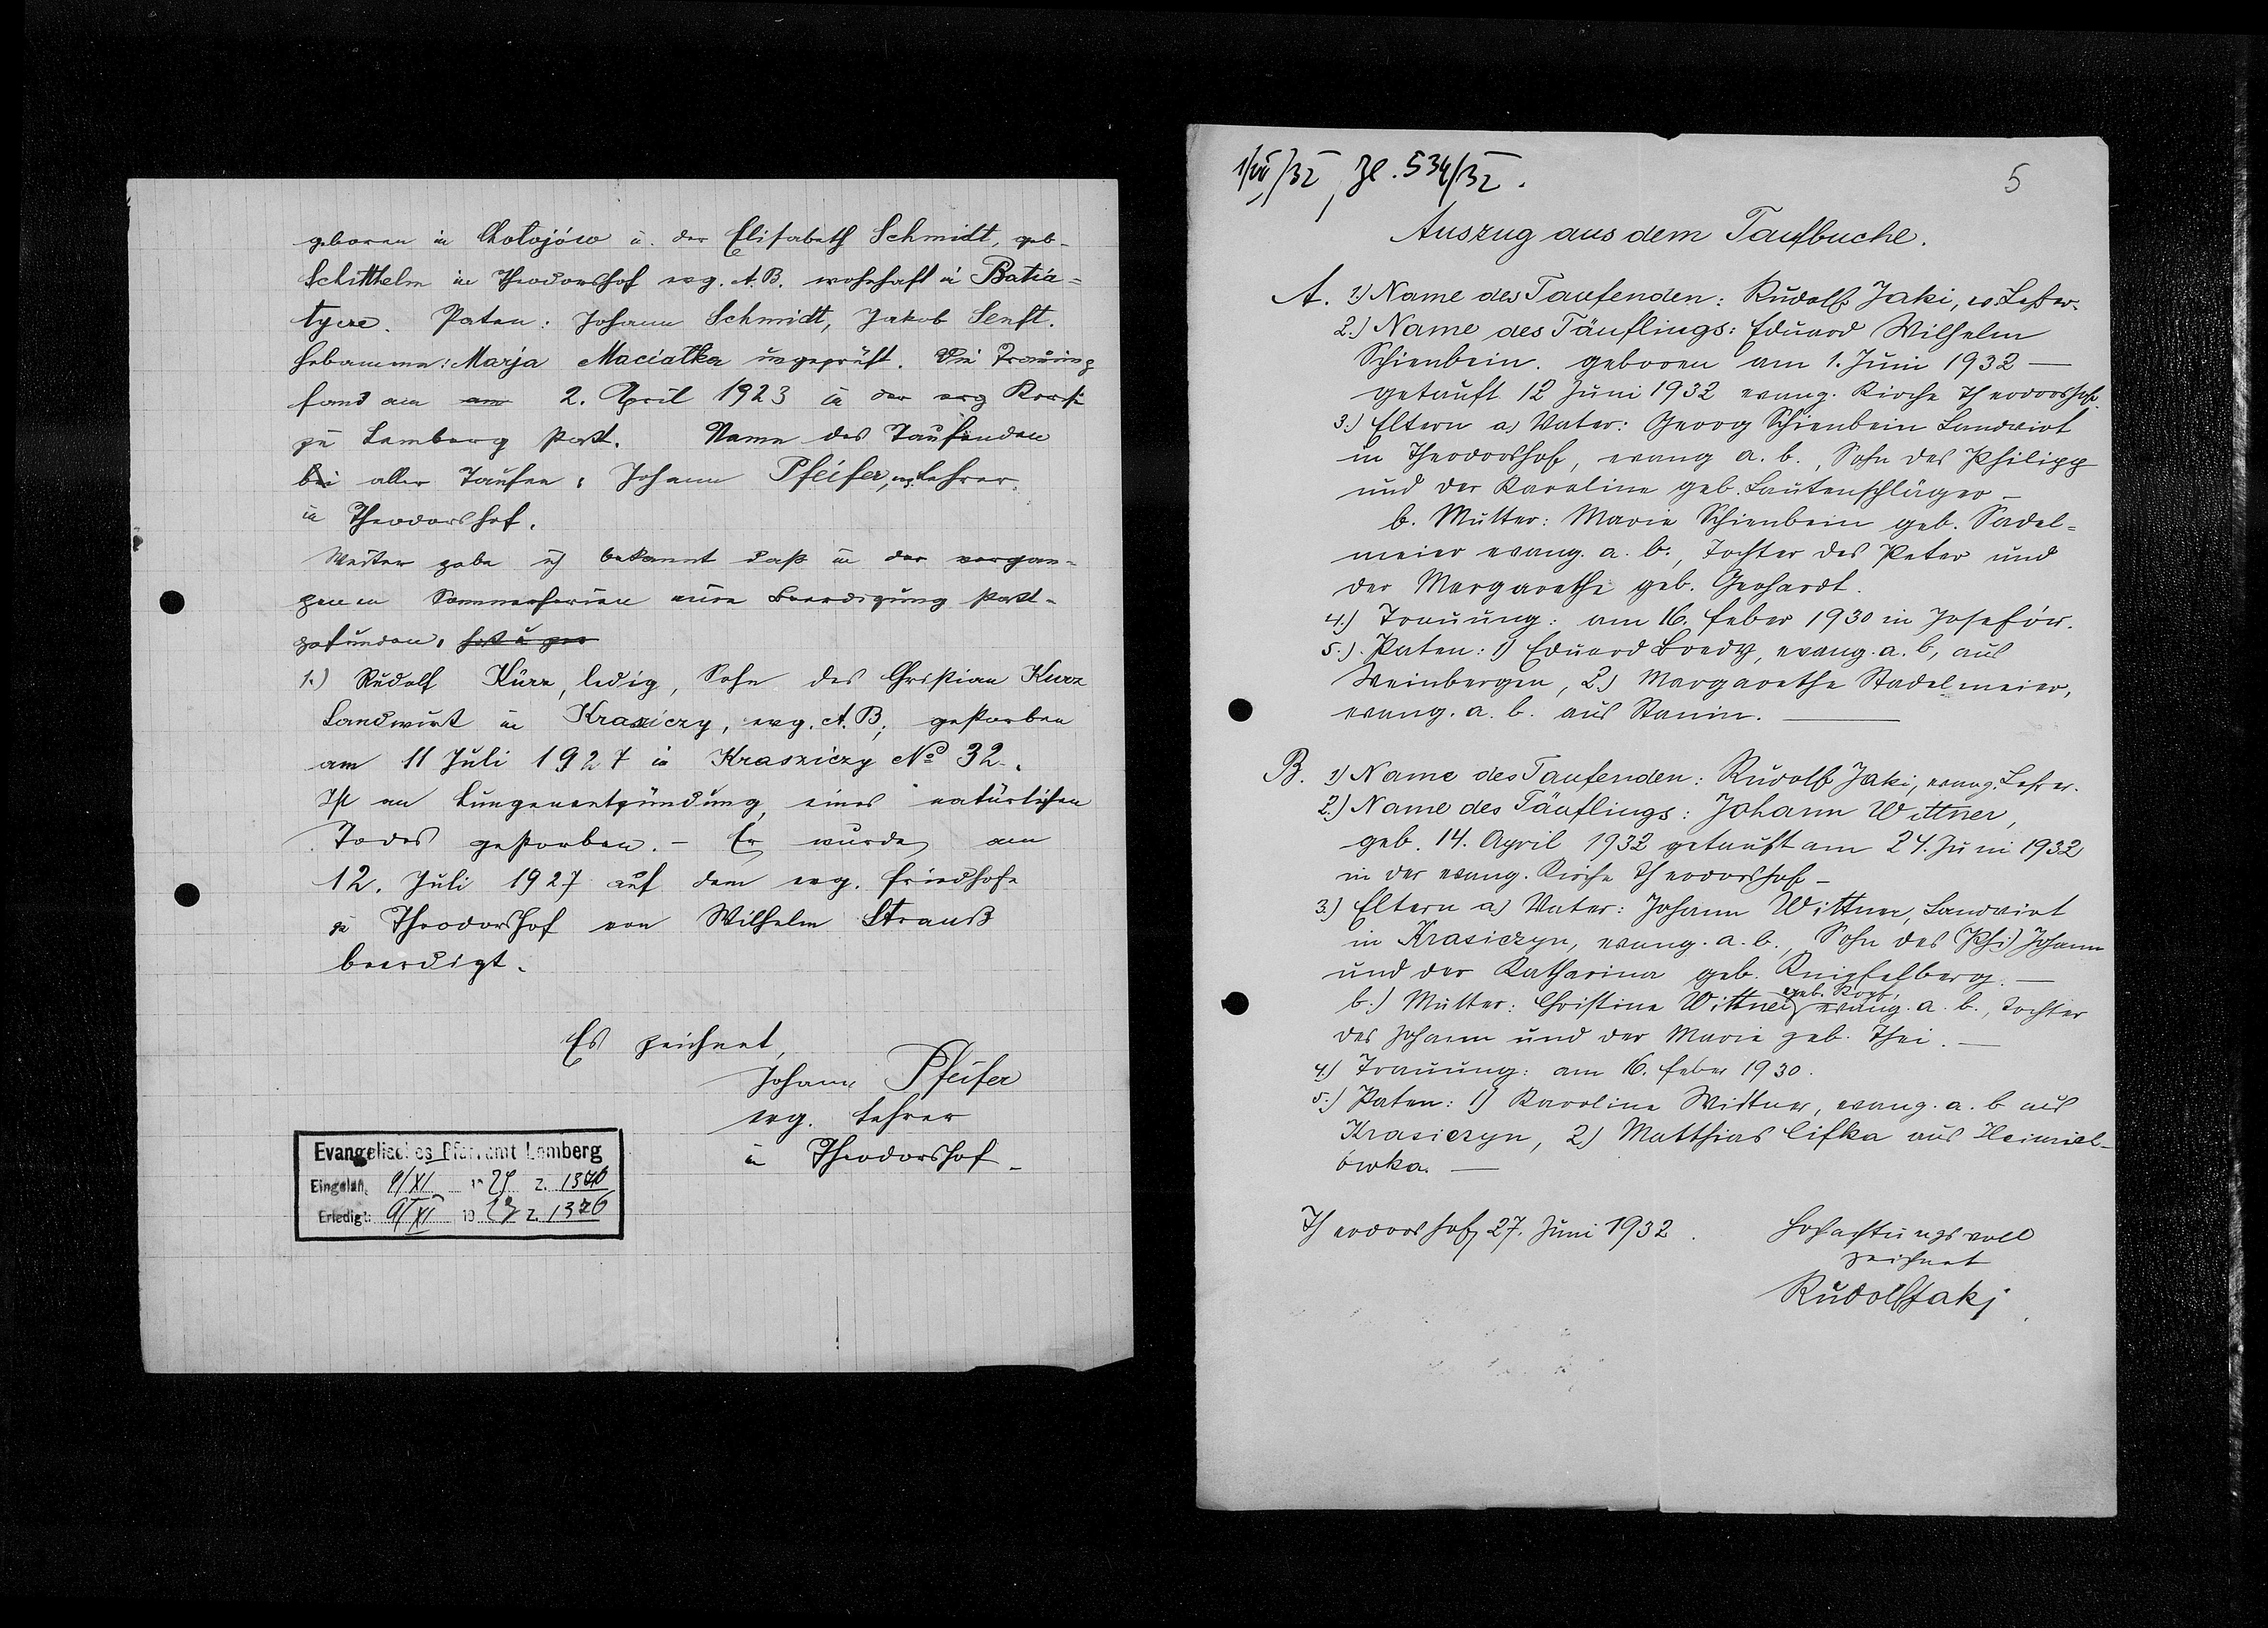 geboren in Chołojów u. der Elisabeth Schmidt, geb-
Schitthelm in Theodorshof evg. A.B. wohnhaft in Batia=
tycze. Paten: Johann Schmidt, Jakob Senft.
Hebamme: Marja Maciałka ungeprüft. Die Trauung
fand am am 2. April 1923 in der evg Kirche
zu Lemberg statt. Name des Taufenden
bei aller Taufen: Johann Pfeifer, evg. Lehrer.
in Theodorshof.
Weiter gebe ich bekannt daß in der vergan-
genen Sommerferien eine Beerdigung statt-
gefunden.
1.) Rudolf Kurz, ledig, Sohn des Christian Kurz
Landwirt in Krasiczy, evg. A.B., gestorben
am 11 Juli 1927 in Krasniczy No 32.
Ist an Lungenentzündung, eines natürlichen
Todes gestorben. - Er wurde am
12. Juli 1927 auf dem evg. Friedhofe
zu Theodorshof von Wilhelm Strauß
beerdigt.
Es zeichnet,
Johann Pfeifer
evg. Lehrer
in Theodorshof
Evangelisches Pfarramt Lemberg
Eingelan. 9/XI 1927 Z. 1326
Erledigt: 9/XI 1927 Z. 1326
1/VII/32, Zl. 534/32.
5
Auszug aus dem Taufbuche.
A. 1.) Name des Taufenden: Rudolf Jaki, ev. Lehrer.
2.) Name des Täuflings: Eduard Wilhelm
Schienbein. geboren am 1. Juni 1932 —
getauft 12 Juni 1932 evang. Kirche Theodorshof.
3.) Eltern a) Vater: Georg Schienbein Landwirt
in Theodorshof, evang a. b., Sohn des Philipp
und der Karoline geb. Lautenschläger -
b. Mutter: Marie Schienbein geb. Sadel=
meier evang. a. b., Tochter des Peter und
der Margarethe geb. Gerhardt.
4.) Trauung: am 16. Feber 1930 in Josefów.
5.). Paten: 1) Eduard Bredy, evang. a. b, aus
Weinbergen, 2.) Margarethe Stadelmeier,
evang. a. b. aus Stanin. —
B. 1) Name des Taufenden: Rudolf Jaki, evang. Lehrer.
2.) Name des Täuflings: Johann Wittner,
geb. 14. April 1932 getauft am 24. Juni 1932
in der evang. Kirche Theodorshof -
3.) Eltern a) Vater: Johann Wittner, Landwirt
in Krasiczyn, evang. a. b., Sohn des (Phi) Johann
und der Katharina geb. Knipfelberg. —
geb. Kopf,
b.) Mutter: Christine Wittner evang. a. b., Tochter
des Johann und der Marie geb. Thei. —
4.) Trauung: am 16. Feber 1930.
5.) Paten: 1) Karoline Wittner, evang. a. b aus
Krasiczyn, 2.) Matthias Cifka aus Heinrich-
ówka. —
Theodorshof, 27. Juni 1932.
Hochachtungsvoll
zeichnet
Rudolf Jaki